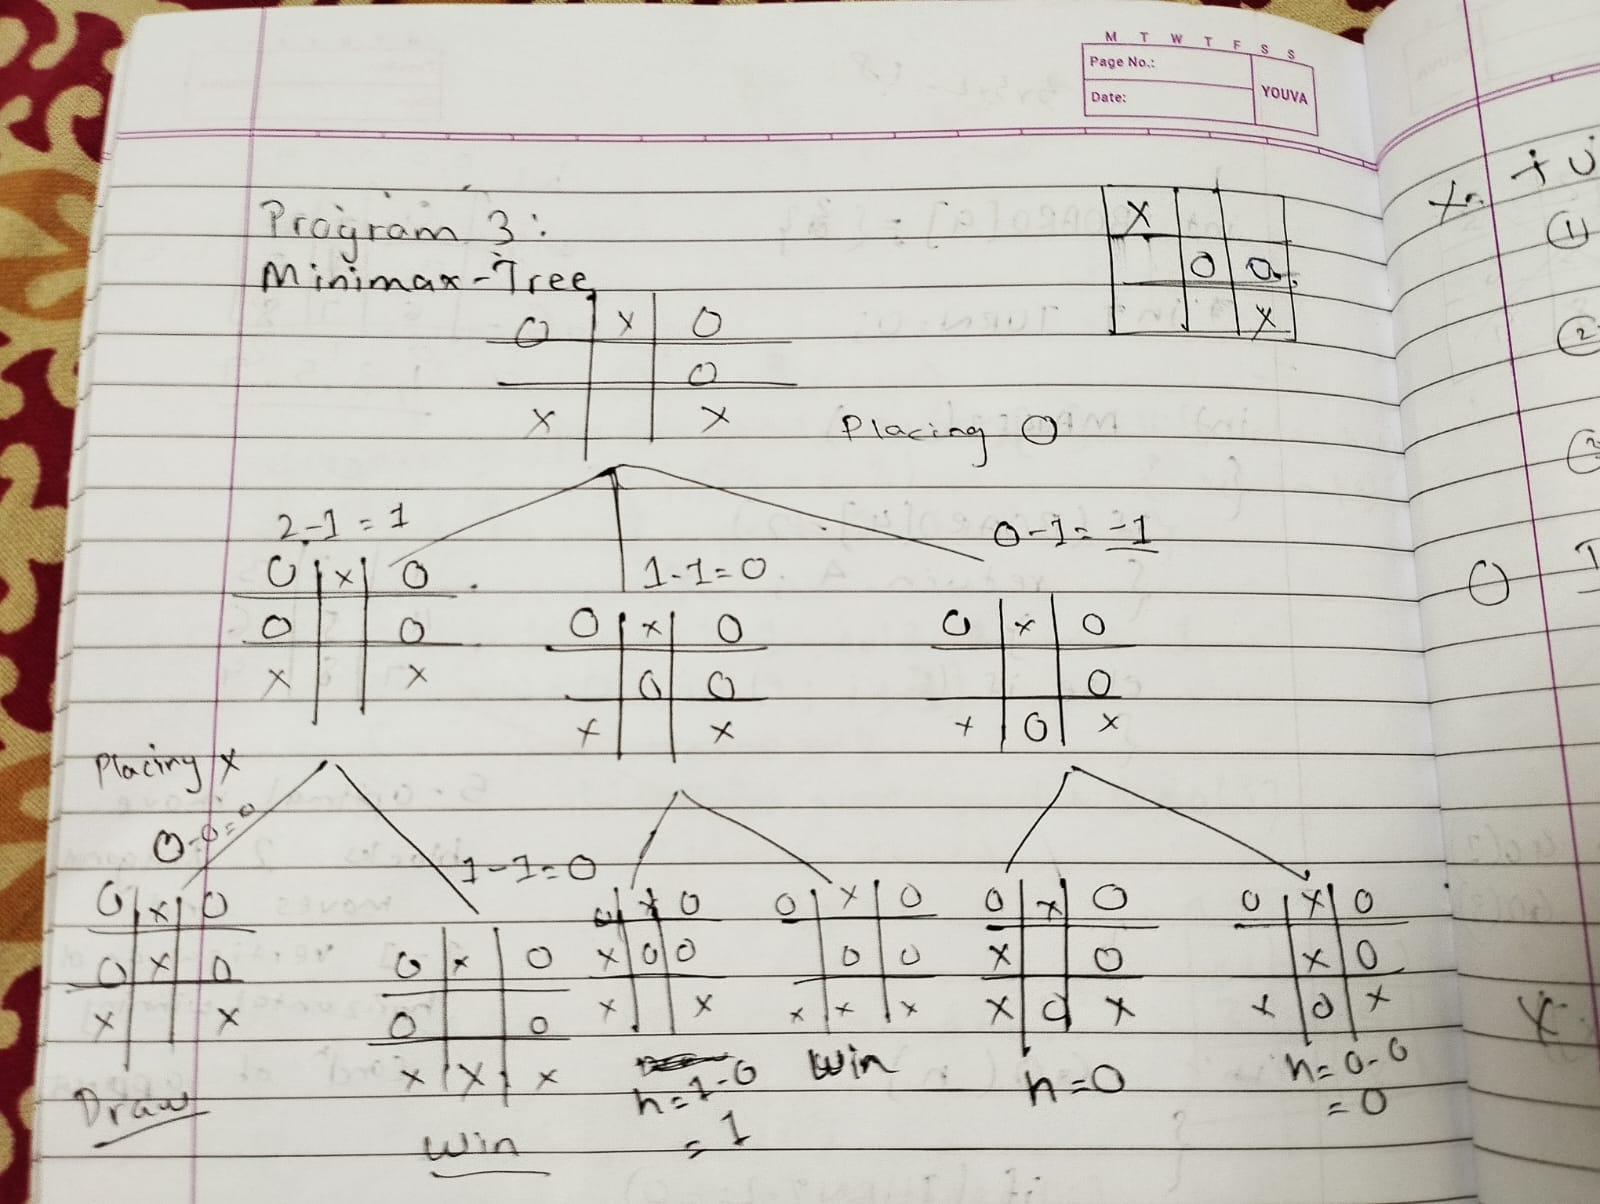 M T W T F S S
Page No.:
Date:
YOUVA
Program 3:
Minimax-Tree
X
O O
X
O X O
O
X X
Placing O
2-1=1
1-1=0
0-1=-1
O X O
O O
X X
O X O
O O
X X
O X O
O
X O X
Placing X
0-0=0
1-1=0
O X O
O X O
X X
Draw
O X O
O O
X X X
Win
O X O
X O O
X X
h=1-0
=1
O X O
O O
X X X
Win
O X O
X O
X O X
h=0
O X O
X O
X O X
h=0-0
=0
(1)
(2)